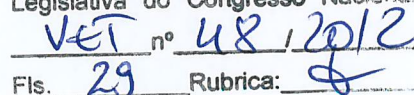 Legislativa do Congresso Nacional
VET nº 48 / 2012
Fls. 29 Rubrica: